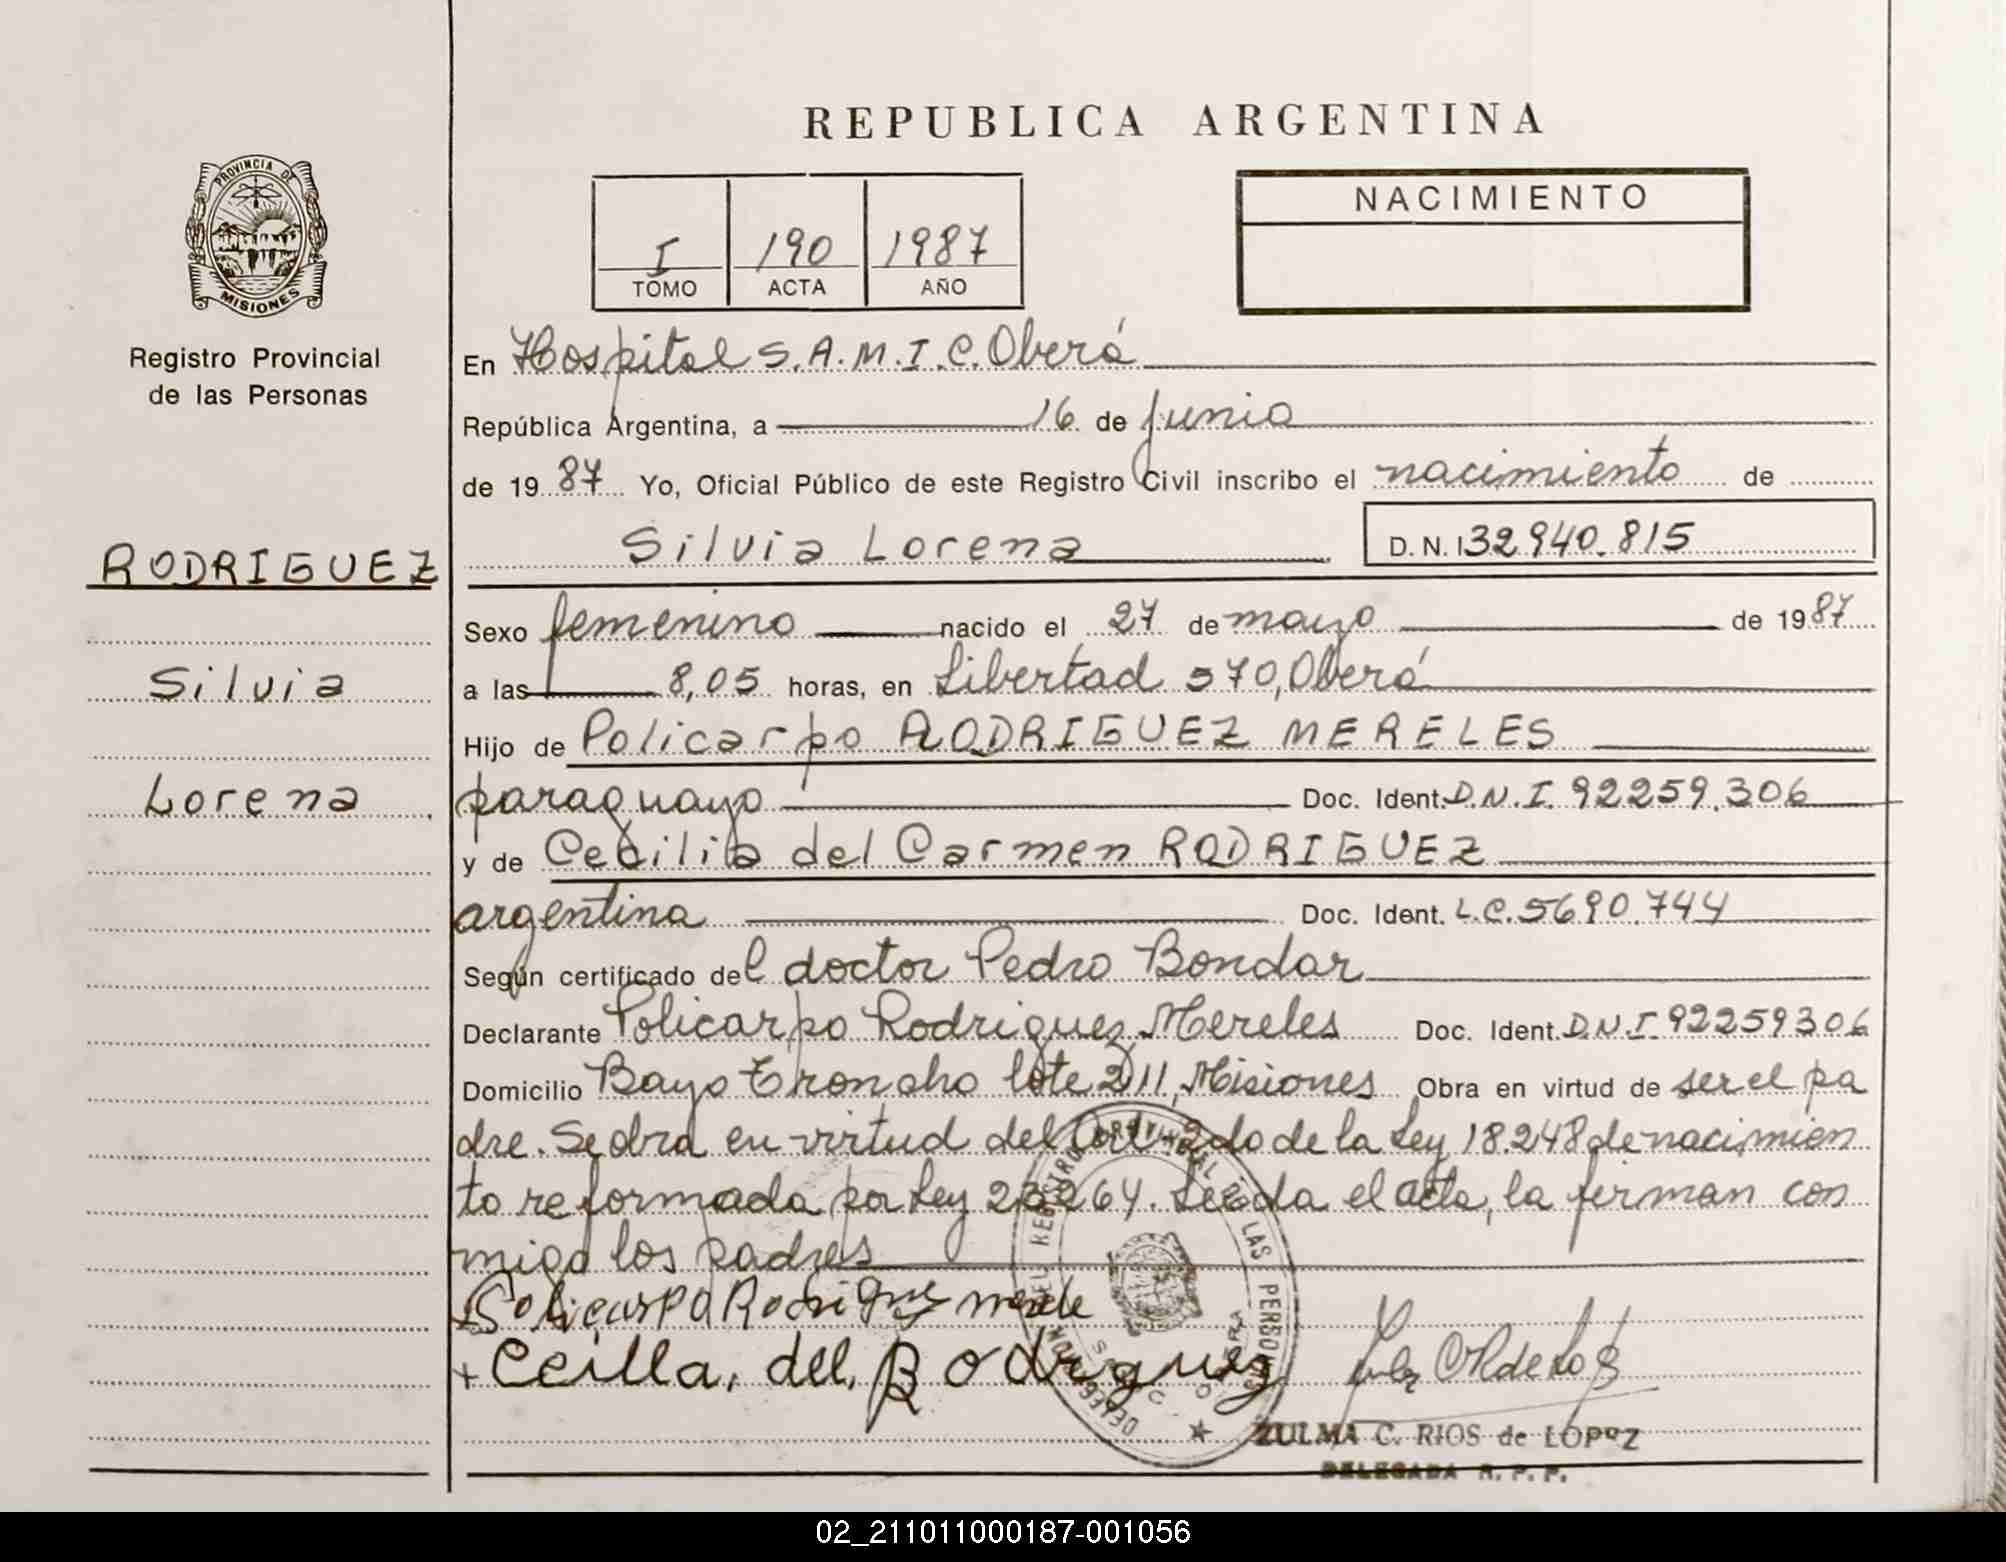 REPUBLICA ARGENTINA
PROVINCIA DE
MISIONES
Registro Provincial
de las Personas
I 190 1987
TOMO ACTA AÑO
NACIMIENTO
En Hospital S.A.M.I.C. Oberá
República Argentina, a 16 de junio
de 1987 Yo, Oficial Público de este Registro Civil inscribo el nacimiento de
Silvia Lorena D.N.I 32940.815
RODRIGUEZ
Silvia
Lorena
Sexo femenino nacido el 27 de mayo de 1987
a las 8,05 horas, en Libertad 570, Oberá
Hijo de Policarpo RODRIGUEZ MERELES
paraguayo Doc. Ident. D.N.I. 92259.306
y de Cecilia del Carmen RODRIGUEZ
argentina Doc. Ident. L.C. 5690.744
Según certificado del doctor Pedro Bondar
Declarante Policarpo Rodriguez Mereles Doc. Ident. D.N.I. 92259306
Domicilio Bayo Troncho lote 211, Misiones Obra en virtud de ser el pa
dre. Se obra en virtud del 2do de la Ley 18.248 de nacimien
to reformada por Ley 23264. Leida el acta, la firman con
migo los padres
Policarpo Rodrigue merele
+ Ceilla. del. Rodrguez
DELEGACION DEL REGISTRO PROVINCIAL DE LAS PERSONAS
ZULMA C. RIOS de LOPEZ
DELEGADA R. P. P.
02_211011000187-001056